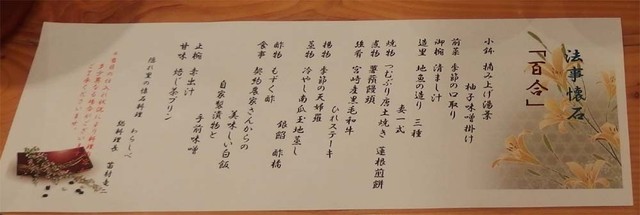 法事懐石
「百合」
小鉢 摘み上げ湯葉
柚子味噌掛け
前菜 季節の口取り
御椀 清まし汁
造里 地魚の造り 三種
妻一式
焼物 つむぶり唐土焼き 蓮根煎餅
煮物 薯蕷饅頭
強肴 宮崎産黒毛和牛
ひれステーキ
揚物 季節の天婦羅
蒸物 冷やし南瓜玉地蒸し
銀餡
酢物 もずく酢 酢橘
食事 契約農家さんからの
美味しい白飯
自家製漬物と
手前味噌
止椀 赤出汁
甘味 焙じ茶プリン
隠れ里の佳品料理 わらしべ
総料理長 富村竜二